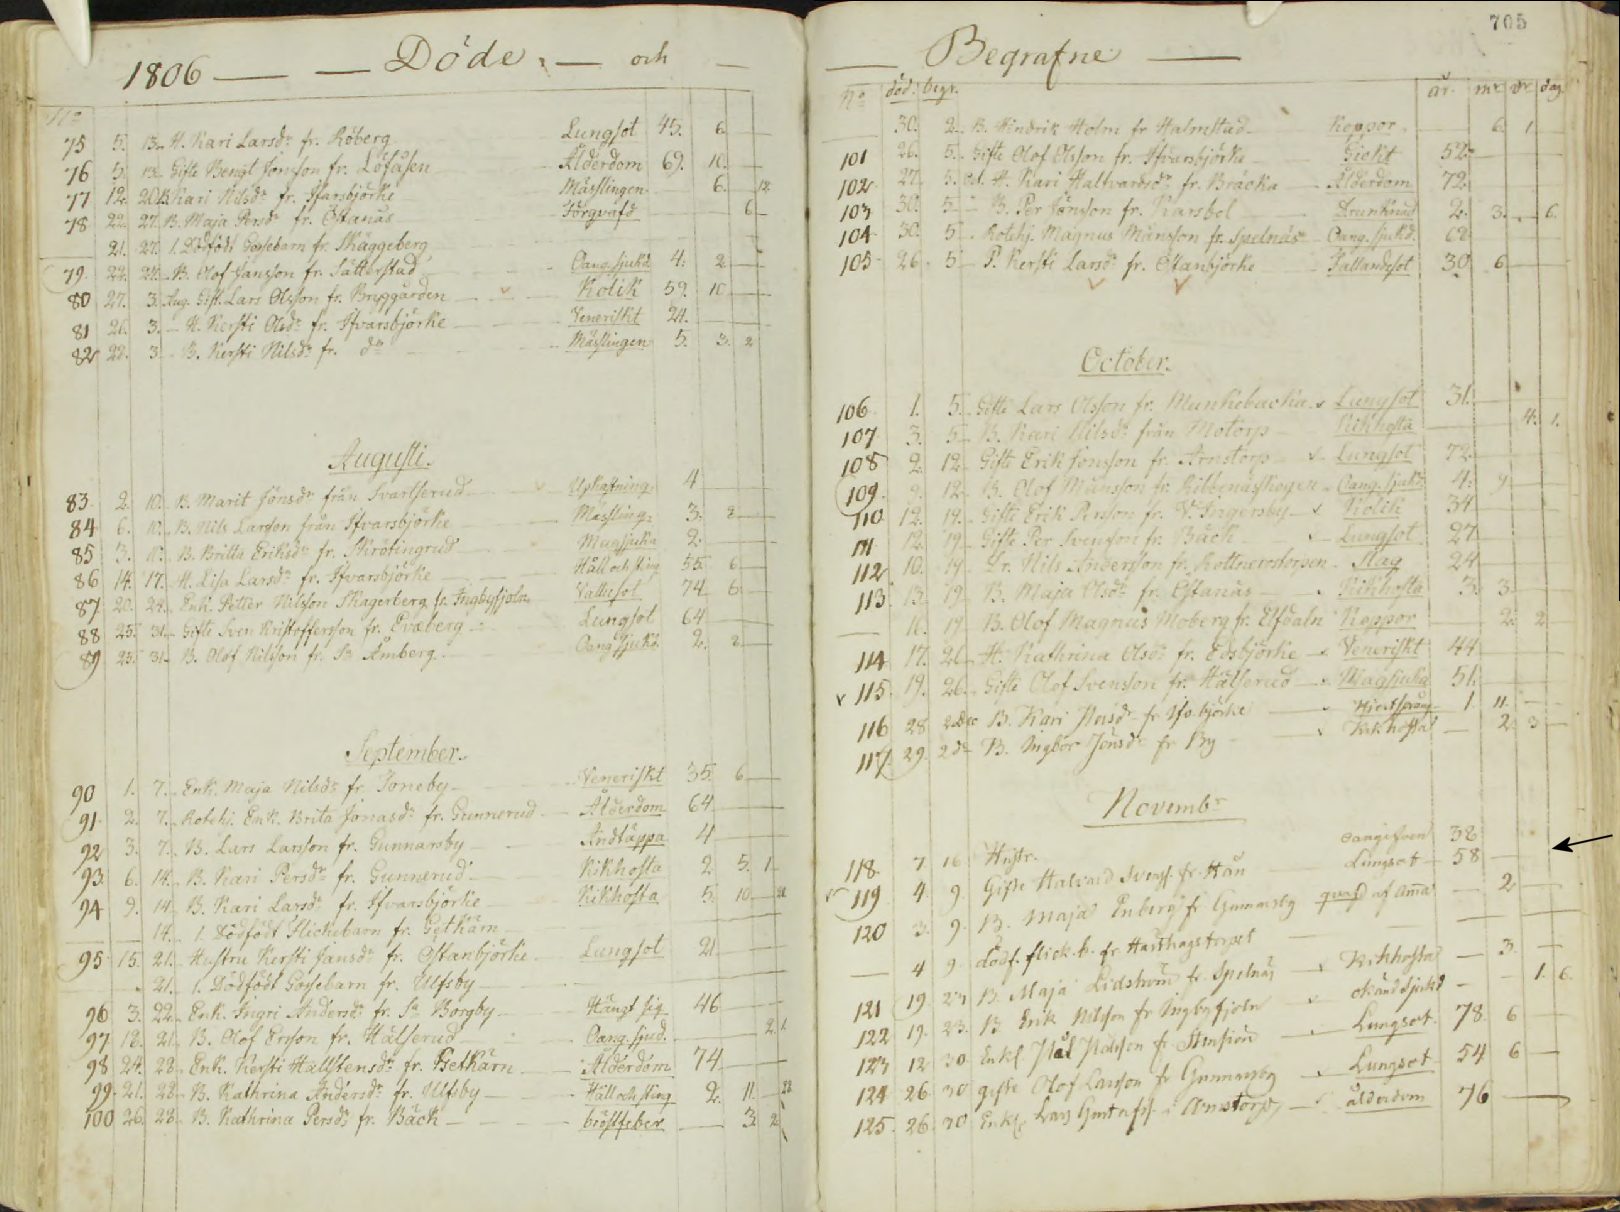 705
1806 Döde, och
Begrafne
No
75 5. 13. H. Kari Larsdr fr. Röberg Lungsot 45. 6.
76 5. 13. Gifte Bengt Jonsson fr. Löfåsen Ålderdom 69. 10.
77 12. 20. B. Kari Nilsdr fr. Ifvarsbjörke Mässlingen 6. 12
78 22. 27. B. Maja Persdr fr. Östanås 6.
21. 27. 1. Dödfödt Gossebarn fr. Skäggeberg
79. 22. B. Olof Jansson fr. Sätterstad Oang. sjukd. 4. 2
80 27. 3. Aug. Gift. Lars Olsson fr. Bryggården Kolik 59. 10
81 26. 3. H. Kersti Olsdr fr. Ifvarsbjörke Veneriskt 24.
82 22. 3. B. Kersti Nilsdr fr. do Mässlingen 5. 3. 2
Augusti.
83. 2. 10. B. Marit Jönsdr från Svartserud 4
84 6. 10. B. Nils Larsson från Ifvarsbjörke Mässling. 3. 2
85 3. 10. B. Britta Eriksdr fr. Skrötingrud Magsjuka 2.
86 14. 17. H. Lisa Larsdr fr. Ifvarsbjörke Håll och sting 55. 6.
87. 20. 24. Enk. Petter Nilsson Skagerberg fr. Ingbysjöla Vattusot 74. 6.
88 25. 31. Gifte Sven Kristoffersson fr. Lungsot 64
89 25. 31. B. Olof Nilsson fr. Så Åmberg Oang. sjukd. 2. 2
September.
90 1. 7. Enk. Maja Nilsdr fr. Toneby Veneriskt 35. 6
91. 2. 7. Rotehj. Enk. Brita Jonasdr fr. Gunnerud Ålderdom 64
92 3. 7. B. Lars Larsson fr. Gunnarsby Andtäppa 4
93 6. 14. B. Kari Persdr fr. Gunnerud Kikhosta 2. 5. 1.
94 9. 14. B. Kari Larsdr fr. Ifvarsbjörke Kikhosta 5. 10.
14. 1. Dödfödt Flickebarn fr. Getkärn
95. 15. 21. Hustru Kersti Jansdr fr. Östanbjörke Lungsot 21.
21. 1. Dödfödt Gossebarn fr. Ulfsby
96 3. 22. Enk. Ingri Andersdr fr. Så Borgby Hängt sig 46
97. 18. 21. B. Olof Erson fr. Hälserud Oang. sjud. 2. 1.
98 24. 28. Enk. Kersti Hallstensdr fr. Getkärn Ålderdom 74
99. 21. 28. B. Kathrina Andersdr fr. Ulfsby Håll och sting 2. 11.
100 26. 28. B. Kathrina Persdr fr. Bäck bröstfeber 3. 2
No död. begr. år. mr. vr. dag
30. 2. B. Hindrik Holm fr. Halmstad Koppor 6. 1
101 26. 5. Gifte Olof Olsson fr. Ifvarsbjörke Giekt 52.
102. 27. 5. H. Kari Hallvardsdr fr. Bräcka Ålderdom 72.
103 30. 5. B. Per Jönsson fr. Karsbol Drunknad 2. 3. 6.
104 30. 5. Rotehj. Magnus Månsson fr. Spelnäs Oang. sjukd. 62
105 26. 5. P. Kersti Larsdr fr. Östanbjörke Fallandesot 30. 6.
October.
106 1. 5. Gifte Lars Olsson fr. Munkebacka Lungsot 31.
107 3. 5. B. Kari Nilsdr från Motorp Kikhosta 4. 1.
108 2. 12. Gifte Erik Jonsson fr. Arnstorp Lungsot 72.
109. 9. 12. B. Olof Månsson fr. Ribbenässkogen Oang. sjukd. 4. 9
110 12. 19. Gifte Erik Persson fr. V. Ingersby Kolik 34
111 12. 19. Gifte Per Svensson fr. Bäck Lungsot 27
112 10. 19. Dr. Nils Andersson fr. Rottnerostorpen Slag 24
113. 13. 19. B. Maja Olsdr fr. Östanås Kikhosta 3. 3.
16. 19 B. Olof Magnus Moberg fr. Elfdaln Koppor 2. 2
114 17. 26. H. Kathrina Olsdr fr. Edsbjörke Veneriskt 44
115. 19. 26. Gifte Olof Svensson fr. Hälserud Magsjuka 51.
116 28 2 Dec B. Kari Persdr fr. Ifvbjörke 1 11.
117. 29. 2 do B. Ingbor Jönsdr fr. By Kikhosta 2. 3
Novembr
118. 7 16 Hustr. 38
119 4. 9. Gifte Halvard Svenss. fr. Hån Lungsot 58
120 3. 9. B. Maja Enberg fr Gunnarsby qvafd af Ama 2
4 9. dödf. flick. b. fr. Haithagstorpet
121 19. 23 B. Maja Lidström fr. Spelnäs Kikhosta 3.
122 19. 23. B. Erik Nilsson fr Ingbysjöln okänd sjukd 1. 6.
123 12 30. Enkl. Pål Pålsson fr. Stensjön Lungsot. 78. 6
124 26 30 gifte Olof Larsson fr Gunnarsby Lungsot 54 6
125. 26. 30 Enkl. Lars Gustafss. i Arnstorp ålderdom 76